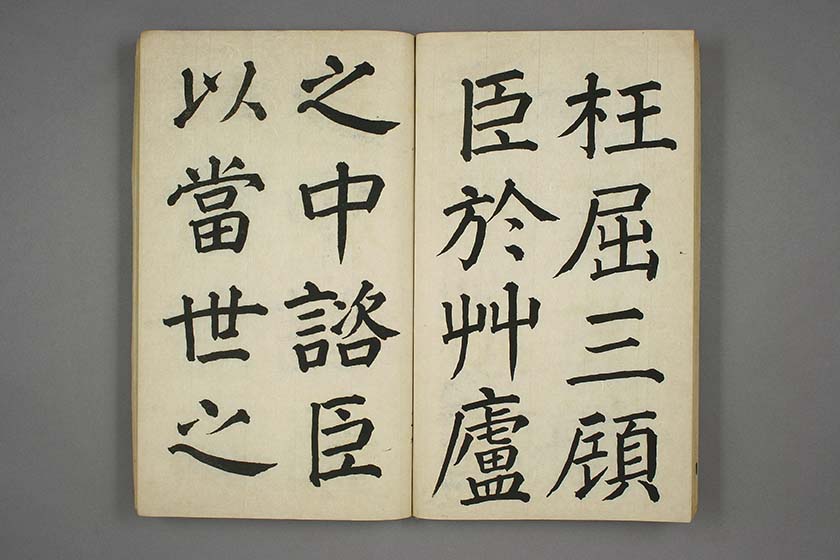 枉屈三顧
臣於艸廬
之中諮臣
以當世之